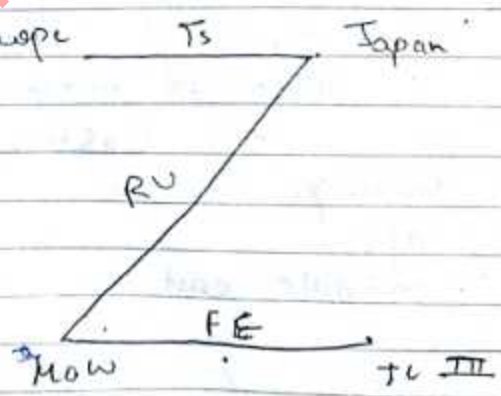 ope Ts Japan
RU
FE
MOW TC III